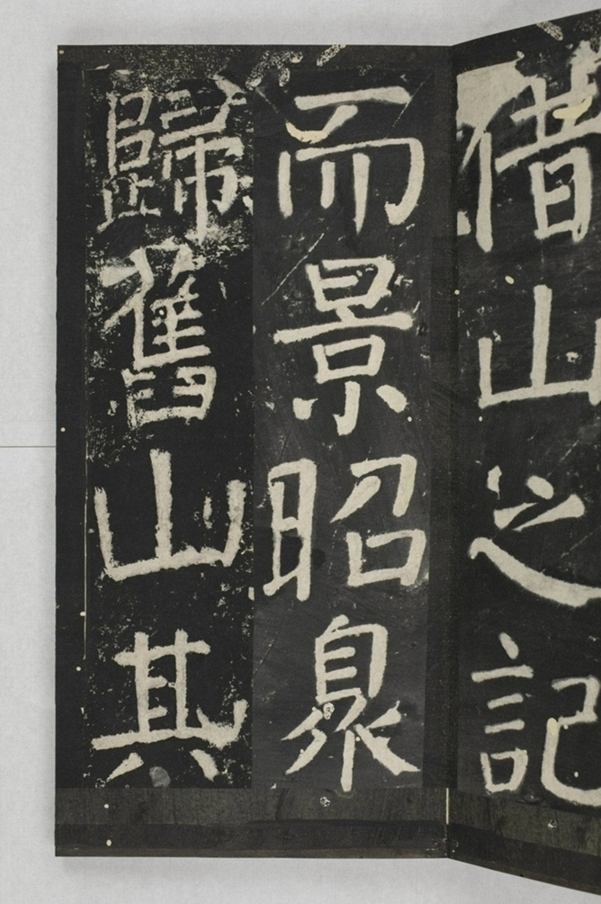 借山之記
而景昭臮
歸舊山其